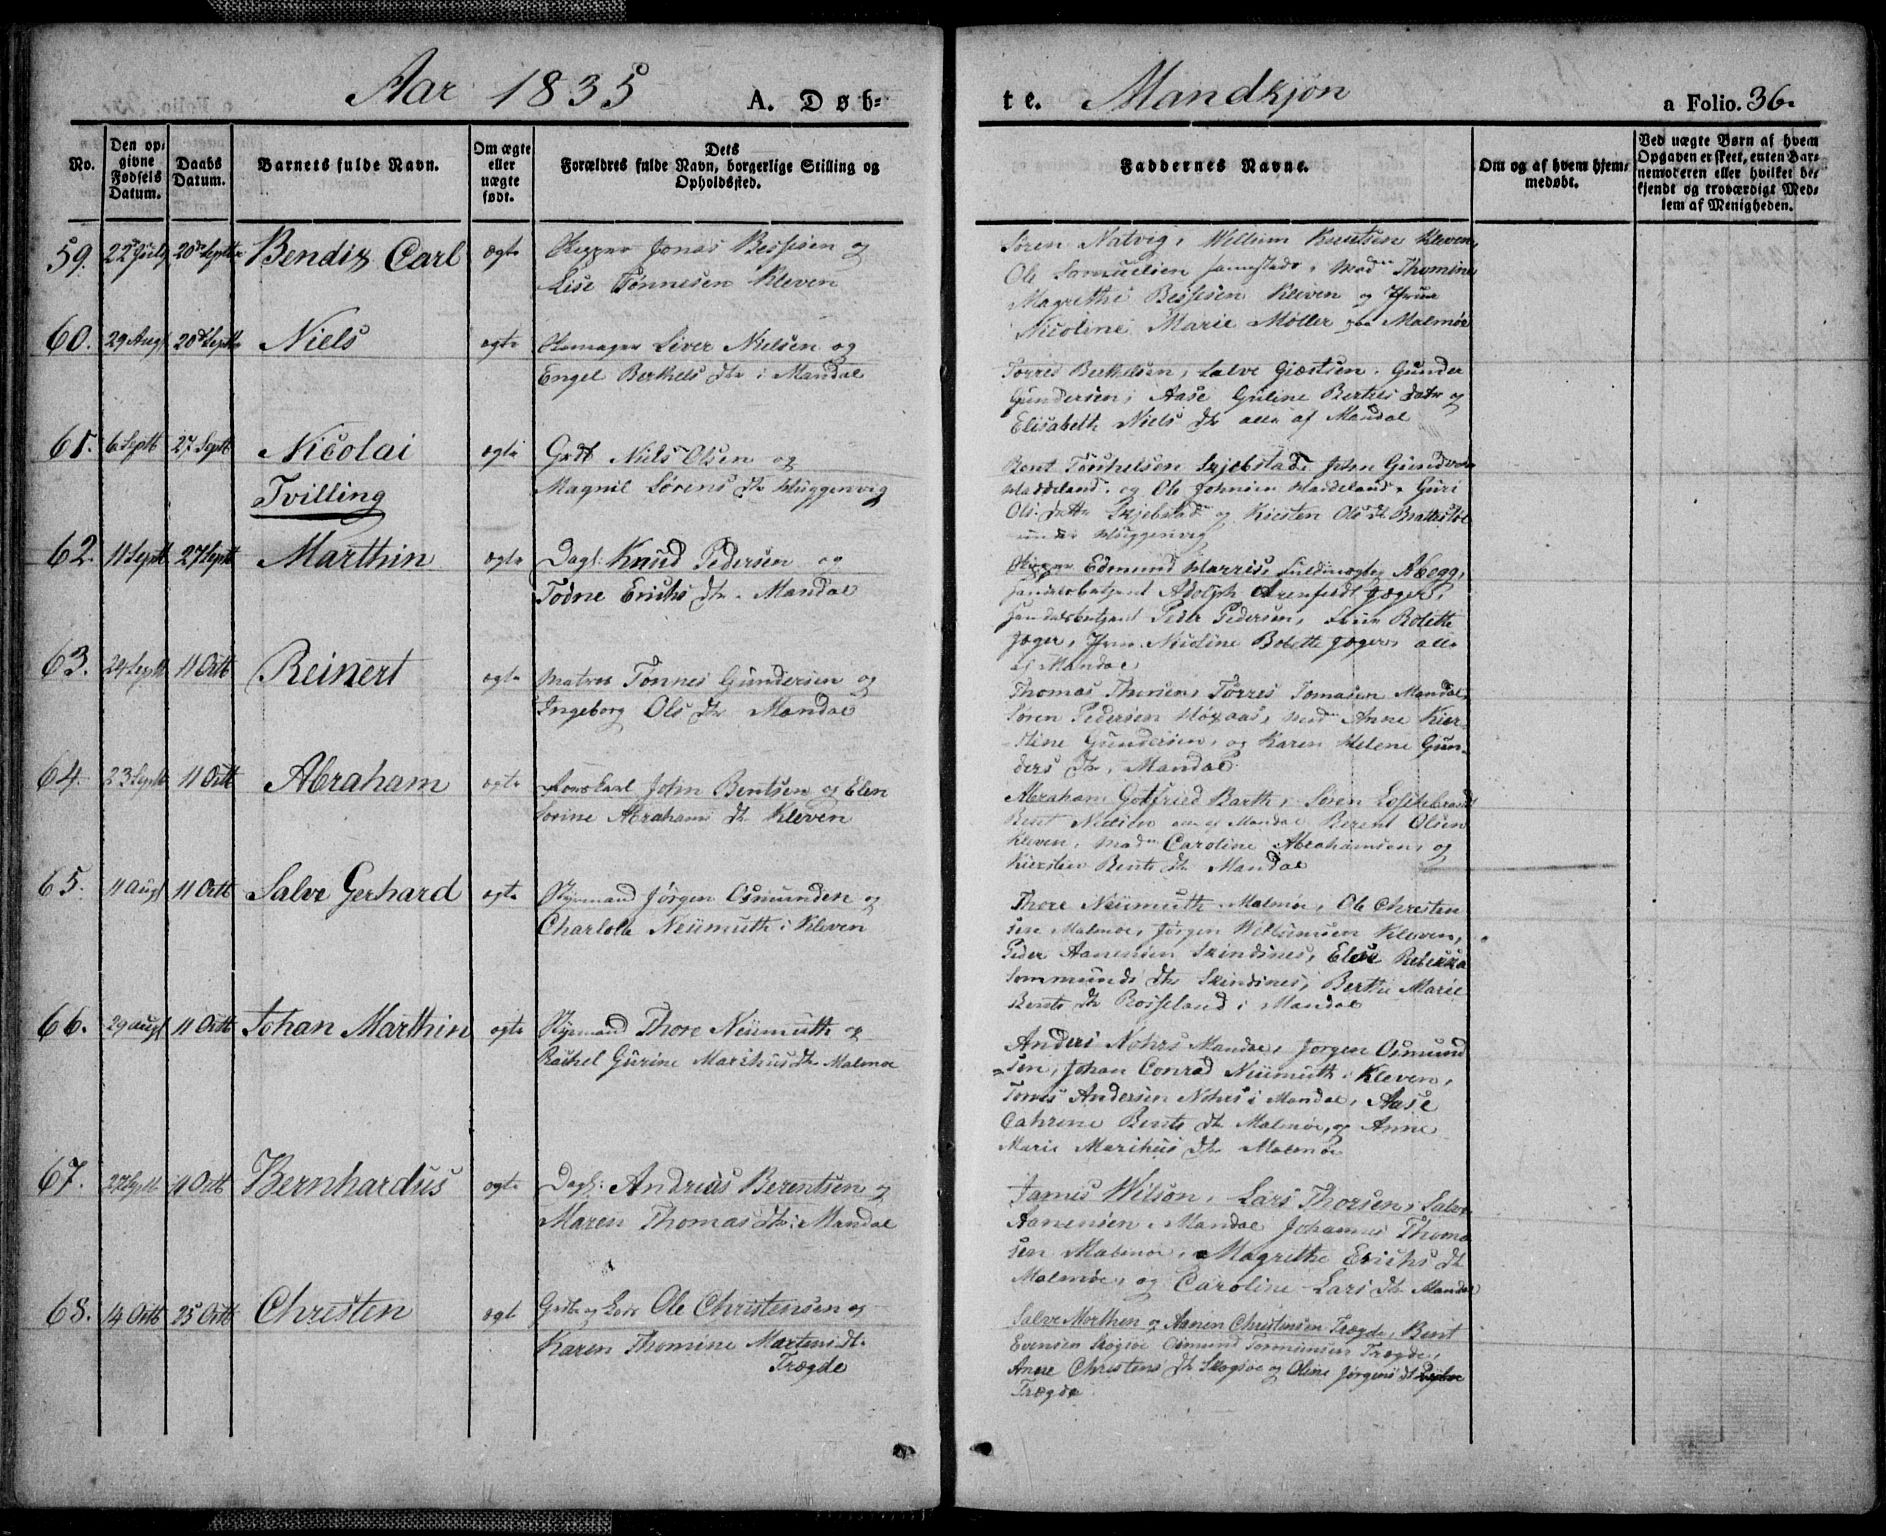 Aar 1835 A. Døb-
te. Mandkjøn a Folio. 36.
No.
Den op-
givne
Fødsels
Datum.
Daabs
Datum.
Barnets fulde Navn.
Om ægte
eller
uægte
født.
Dets
Forældres fulde Navn, borgerlige Stilling og
Opholdssted.
Faddernes Navne.
Om og af hvem hjem-
medøbt.
Ved uægte Børn af hvem
Opgaven er skeet, enten Bar-
nemoderen eller hvilket be-
kjendt og troværdigt Med-
lem af Menigheden.
59. 22 July 20de Septbr Bendix Carl ægte Skipper Jonas Bessesen og
Lise Tønnesen Kleven
Søren Natvig, Willum Knutsen Kleven,
Ole Samuelsen sammestads, Mad Thomine
Magrethe Bessesen Kleven og Frue
Nicoline Marie Møller fra Malmøe
60. 29 Aug 20de Septbr Niels ægte Skomager Siver Nielsen og
Engel Berthels Dtr i Mandal
Torres Berthelsen, Salve Giæstsen, Gunder
Gundersen, Aase Guline Bertels Datr og
Elisabeth Niels Dtr alle af Mandal
61. 6 Septb 27 Septb Nicolai ægte Grdb Niels Olsen og
Tvilling
Magnil Sørens Dtr Huggenvig
Bent Skjebstad, John
Haddeland, og Ole Johnsen Haddeland, Guri
Ols Datter Skjebstad og Kirsten Ols Dtr
under Huggenvig
62. 11 Septb 27 Septb Marthin ægte Dagl. Knud Pedersen og
Todne Erichs Dtr Mandal
Skipper Edmund Harris, Aaegg,
Handelsbetjent Adolph Arenfeldt Jæger,
Handelsbetjent Peder Pedersen, Bolette
Jæger, Nicoline Bolette Jæger, alle
i Mandal
63. 24 Septb 11 Octb Reinert ægte Matros Tønnes Gundersen og
Ingeborg Ols Dtr Mandal
Thomas Thorsen, Tørres Tomasen Mandal,
Søren Pedersen Høxaas, Mad Anne Kier-
stine Gundersen, og Karen Helene Gun-
ders Dtr, Mandal
64. 23 Septb 11 Octb Abraham ægte John Bentsen og Elen
Sorine Abrahams Dtr Kleven
Abraham Gotfried Barth, Søren
Bent Nielsen alle af Mandal Berent Olsen
Kleven, Mad Caroline Abrahamsen, og
Kiersten Bents Dtr Mandal
65. 11 Aug 11 Octb Salve Gerhard ægte Styrmand Jørgen Osmundsen og
Charlota Neümuth i Kleven
Thore Neümuth Malmøe, Ole Christen-
sen Malmøe, Jørgen Willumsen Kleven,
Peder Aanensen Skindsnes, Elese Rebekka
Sommunds Dtr Skindsnes, Berthe Marie
Bents Dtr Rosseland i Mandal
66. 29 Aug 11 Octb Johan Marthin ægte Styrmand Thore Neümuth og
Rachel Gurine Marchus Dtr Malmøe
Anders Nohrs Mandal, Jorgen Osmund-
sen, Johan Conrad Neümuth i Kleven,
Tønes Andersen Nohrs i Mandal, Aase
Cahrine Bents Dtr Malmøe, og Anne
Marie Marchus Dtr Malmøe
67. 27 Septb 11 Octb Bernhardus ægte Dagl: Andreas Berentsen og
Maren Thomas Dtr i Mandal
James Wilson, Lars Thorsen, Salve
Aanensen Mandal Johannes Thoma-
sen Malmøe, Magrethe Erichs Dt
Malmøe, og Caroline Lars Dtr Mandal
68. 14 Octb 25 Octb Christen ægte Grdb og Lods Ole Christensen og
Karen Thomine Martens Dt.
Trægde
Salve Morthen og Aanen Christensen Trægde, Bent
Evensen Skogsøe Osmund Tormunsen Trægde,
Anne Christens Dtr Skogsøe og Oline Jørgens Dt
Trægde